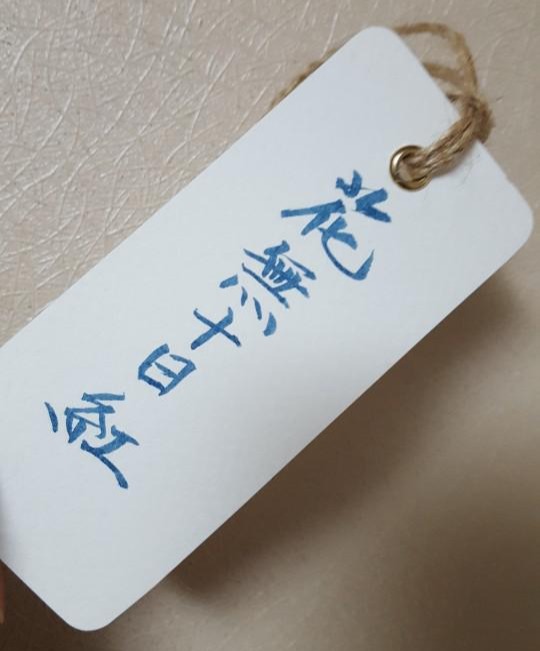 花無十日紅